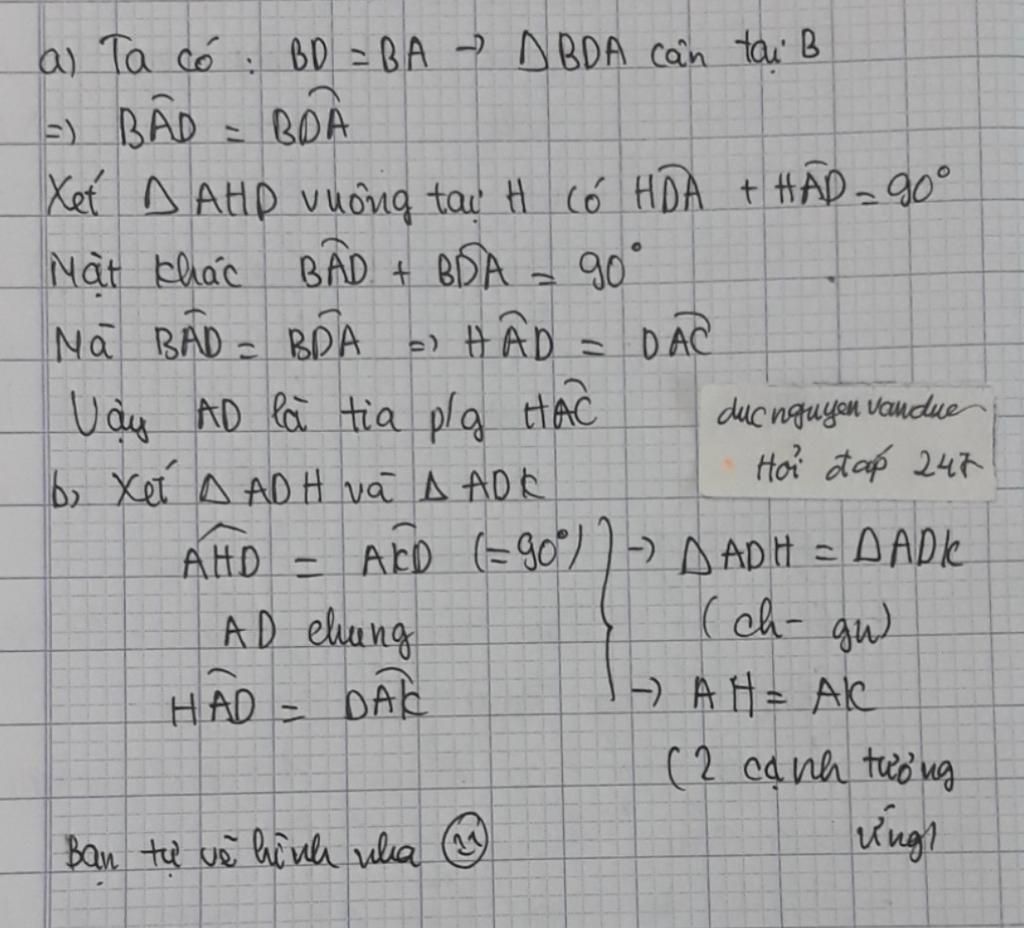 a) Ta có : BD = BA → ΔBDA cân tại B
=> BÂD = BD̂A
Xét Δ AHD vuông tại H có HD̂A + HÂD = 90°
Mặt khác BÂD + BD̂A = 90°
Mà BÂD = BD̂A => HÂD = DÂC
Vậy AD là tia p/g HÂC
ducnguyenvanduc
Hỏi đáp 247
b, Xét Δ ADH và Δ ADK
AĤD = AK̂D (=90°) → Δ ADH = ΔADK
AD chung (ch - gn)
HÂD = DÂK → AH = AK
(2 cạnh tương
ứng)
Bạn tự vẽ hình nha